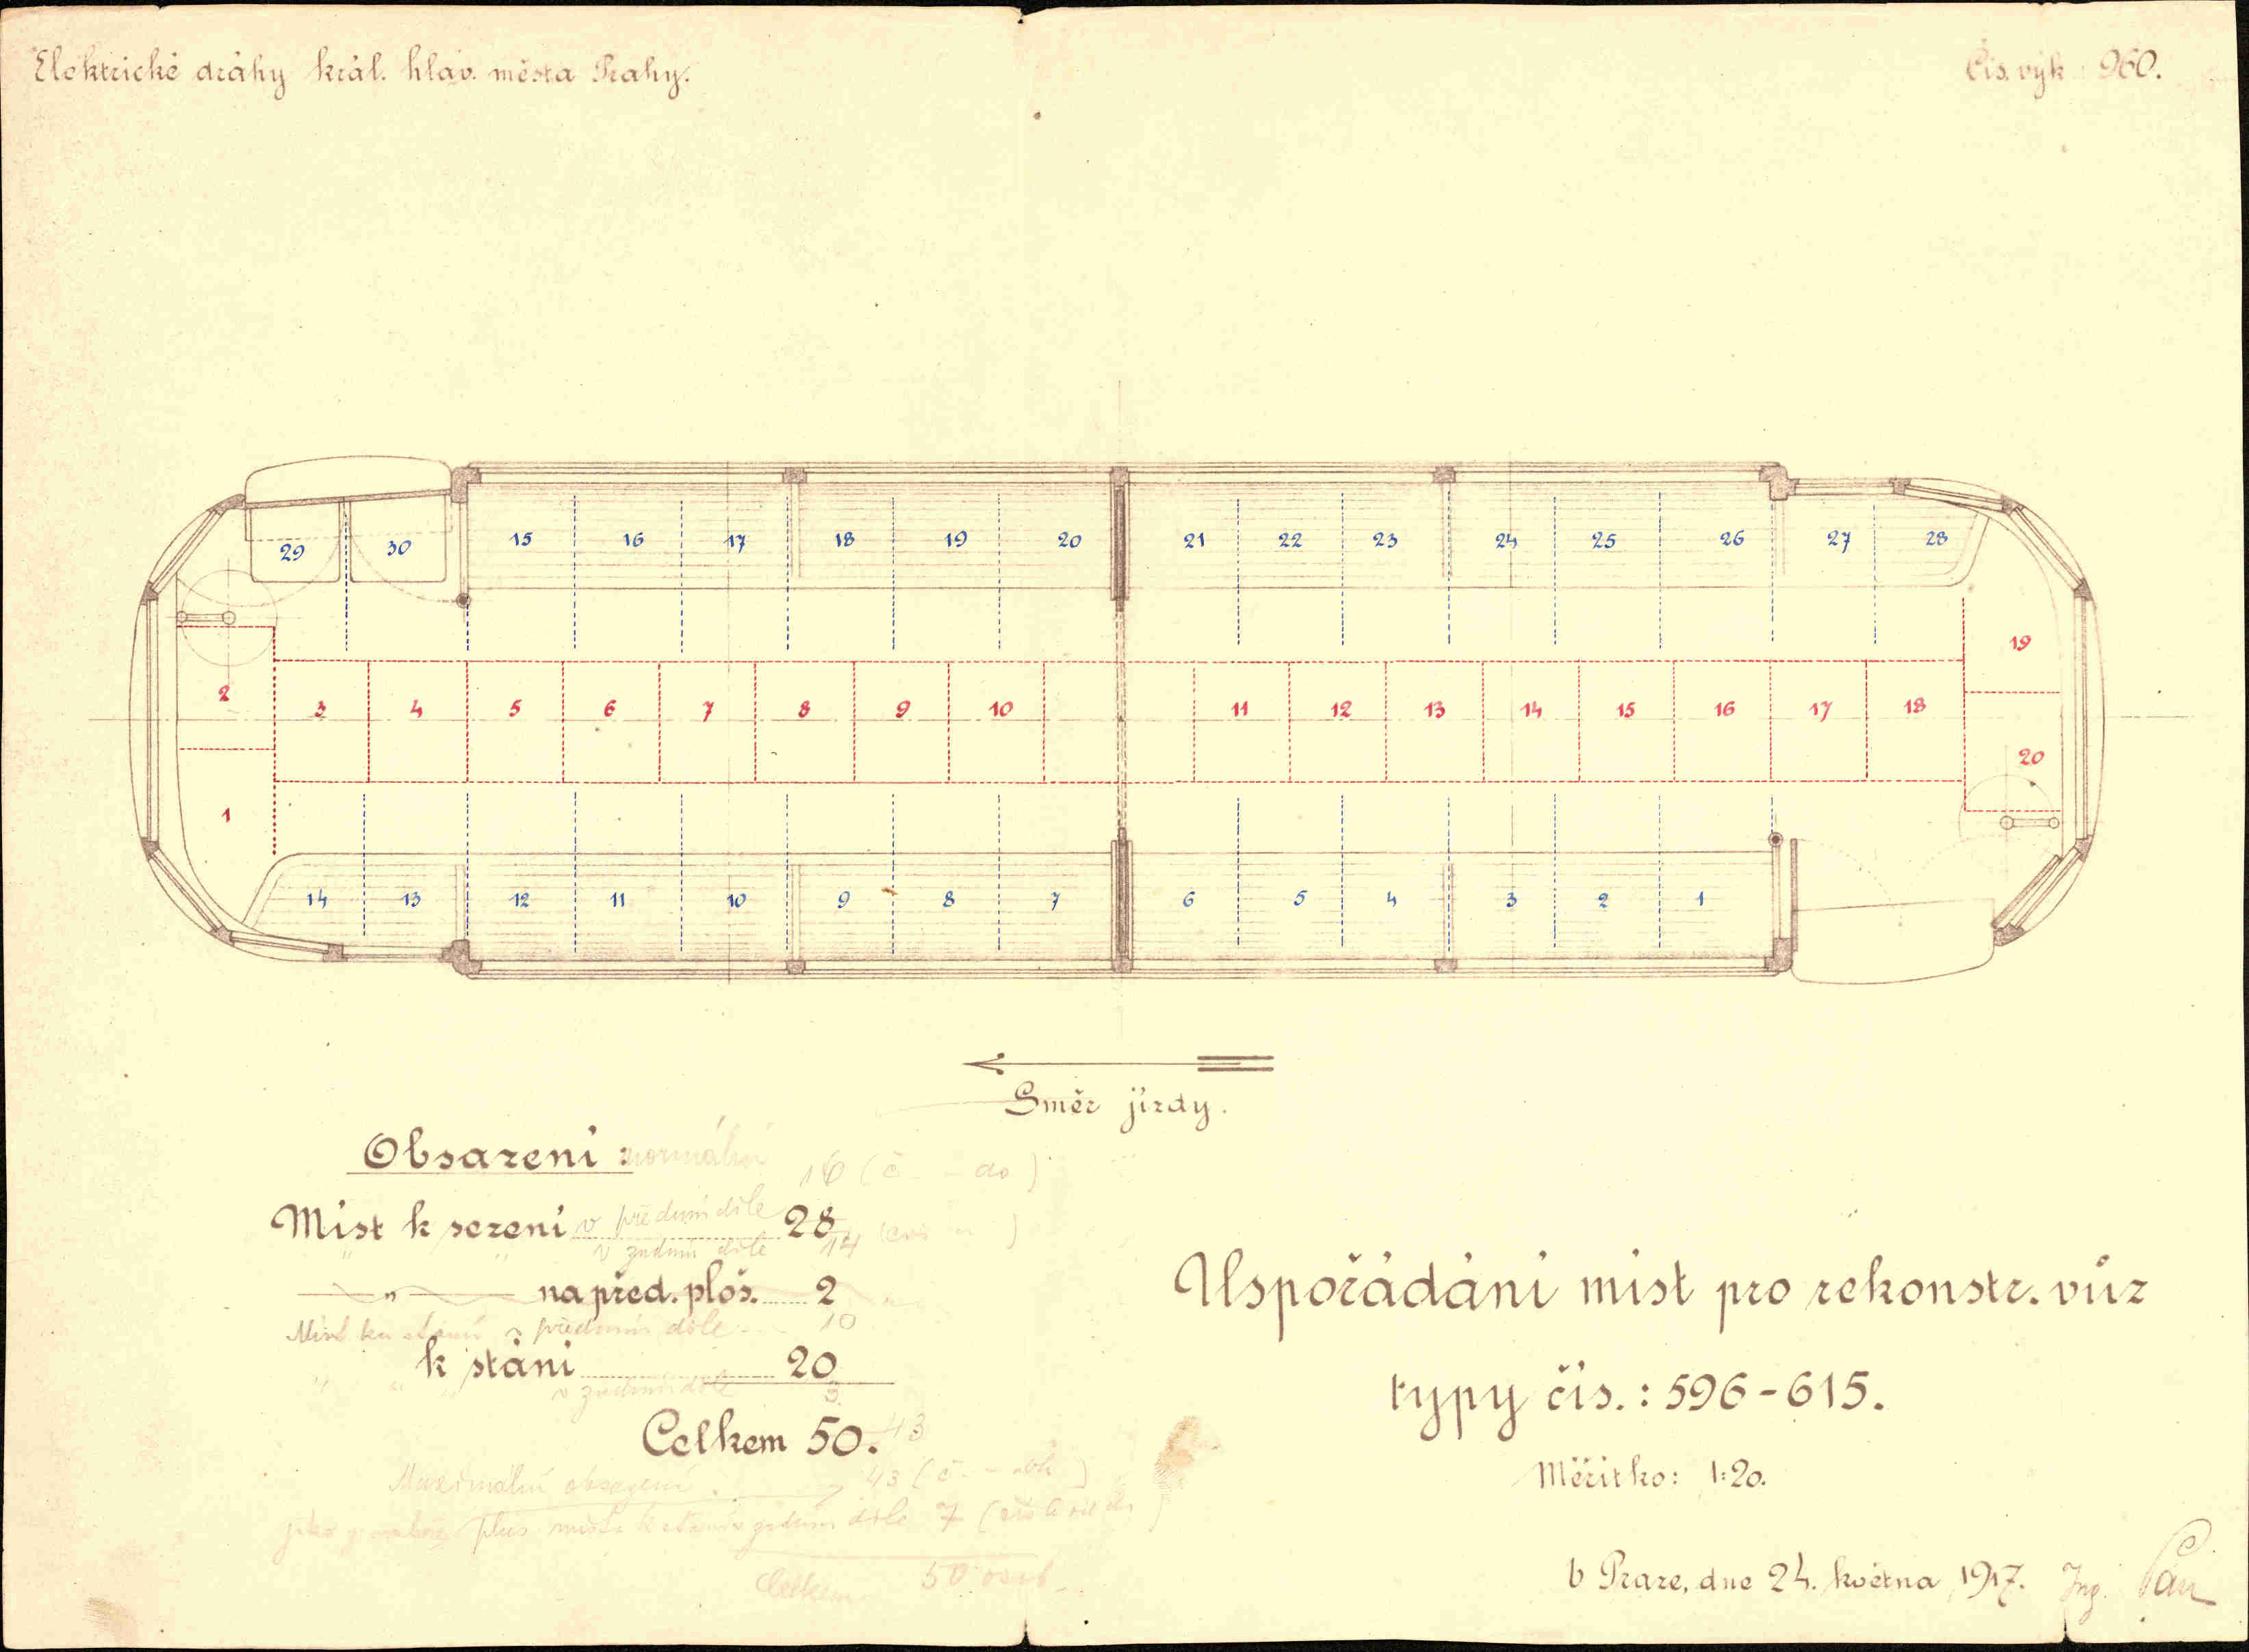 Elektrické dráhy král. hlav. města Prahy.
Čís. výk. 960.
29 30 15 16 17 18 19 20 21 22 23 24 25 26 27 28
19
2 3 4 5 6 7 8 9 10 11 12 13 14 15 16 17 18
20
1
14 13 12 11 10 9 8 7 6 5 4 3 2 1
Směr jízdy.
Obsazení: normální
16 (č - do )
Míst k sezení v předním díle 28
" " v zadním díle 14
— " — na před. ploš. 2
Míst ku stání v předním díle 10
k stání 20
" " v zadním díle 3
Celkem 50. 43
Maximální obsazení: 43
plus místa k stání v zadním díle 7
Celkem 50 osob
Uspořádání míst pro rekonstr. vůz
typy čís.: 596-615.
Měřítko: 1:20.
V Praze, dne 24. května 1917. Ing.